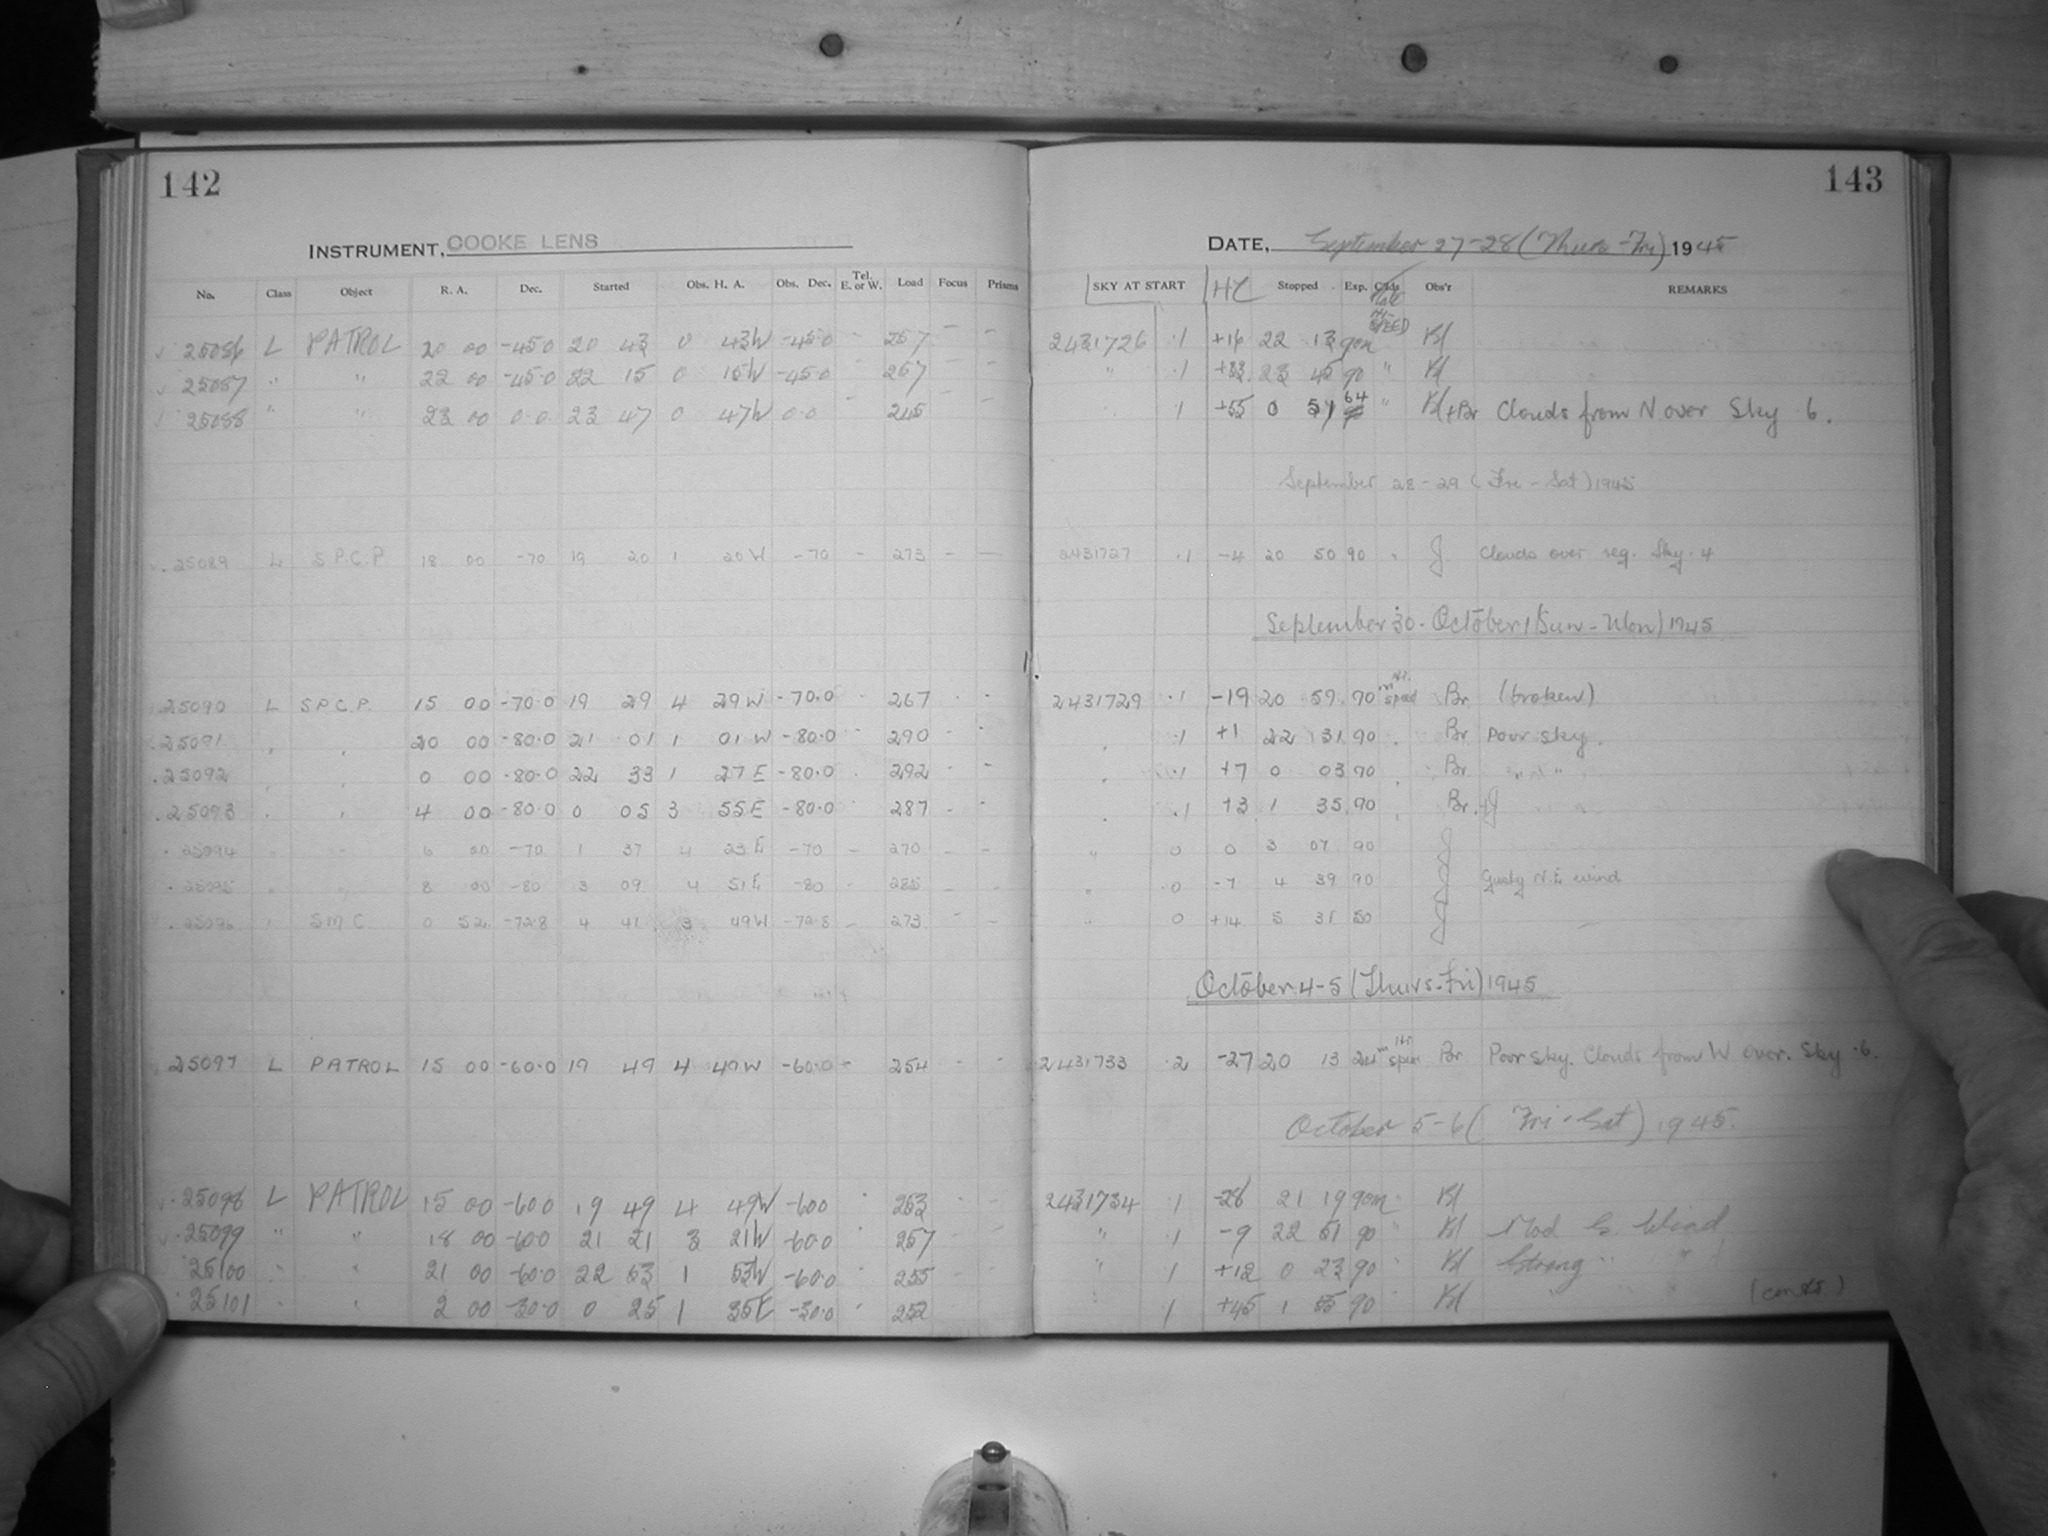 142
INSTRUMENT, COOKE LENS
No. Class Object R. A. Dec. Started Obs. H. A. Obs. Dec. Tel. E. or W. Load Focus Prisms
25086 L PATROL 20 00 -45.0 20 43 0 43W -45.0 - 257 - -
25087 " " 22 00 -45.0 22 15 0 15W -45.0 - 267
25088 " " 23 00 0.0 23 47 0 47W 0.0 - 245
25089 L S.P.C.P 18 00 -70 19 20 1 20W -70 - 273 - -
25090 L S.P.C.P. 15 00 -70.0 19 29 4 29W -70.0 - 267 - -
25091 " " 20 00 -80.0 21 01 1 01W -80.0 - 290 - -
25092 " " 0 00 -80.0 22 33 1 27E -80.0 - 292 - -
25093 " " 4 00 -80.0 0 05 3 55E -80.0 - 287 - -
25094 " " 6 00 -70 1 37 4 23E -70 - 270 - -
25095 " " 8 00 -80 3 09 4 51E -80 - 285 - -
25096 " SMC 0 52 -72.8 4 41 3 49W -72.8 - 273 - -
25097 L PATROL 15 00 -60.0 19 49 4 49W -60.0 - 254 - -
25098 L PATROL 15 00 -60.0 19 49 4 49W -60.0 - 263 - -
25099 " " 18 00 -60.0 21 21 3 21W -60.0 - 257 - -
25100 " " 21 00 -60.0 22 53 1 53W -60.0 - 255 - -
25101 " " 2 00 -30.0 0 25 1 35E -30.0 - 252
143
DATE, September 27-28 (Thurs-Fri) 1945
SKY AT START HC Stopped Exp. Plate Obs'r REMARKS
2431726 .1 +16 22 13 90m Hi-SPEED Bl
" .1 +33 23 45 90 " Bl
" .1 +55 0 51 64 " Bl+Br Clouds from N over Sky .6.
September 28-29 (Fri-Sat) 1945
2431727 .1 -4 20 50 90 " J. Clouds over reg. Sky .4
September 30-October 1 (Sun-Mon) 1945
2431729 .1 -19 20 59 90m Hi. speed Br (broken)
" .1 +1 22 31 90 " Br Poor sky.
" .1 +7 0 03 90 " Br " "
" .1 +3 1 35 90 " Br.+J
" 0 0 3 07 90 J
" .0 -7 4 39 90 J Gusty N.E wind
" 0 +14 5 31 50 J
October 4-5 (Thurs-Fri) 1945
2431733 .2 -27 20 13 24m Hi speed Br Poor sky. Clouds from W over. Sky .6.
October 5-6 (Fri-Sat) 1945.
2431734 .1 -28 21 19 90m " Bl
" .1 -9 22 51 90 " Bl Mod S. Wind
" .1 +12 0 23 90 " Bl Strong " "
" .1 +45 1 55 90 " Bl " "
(contd)